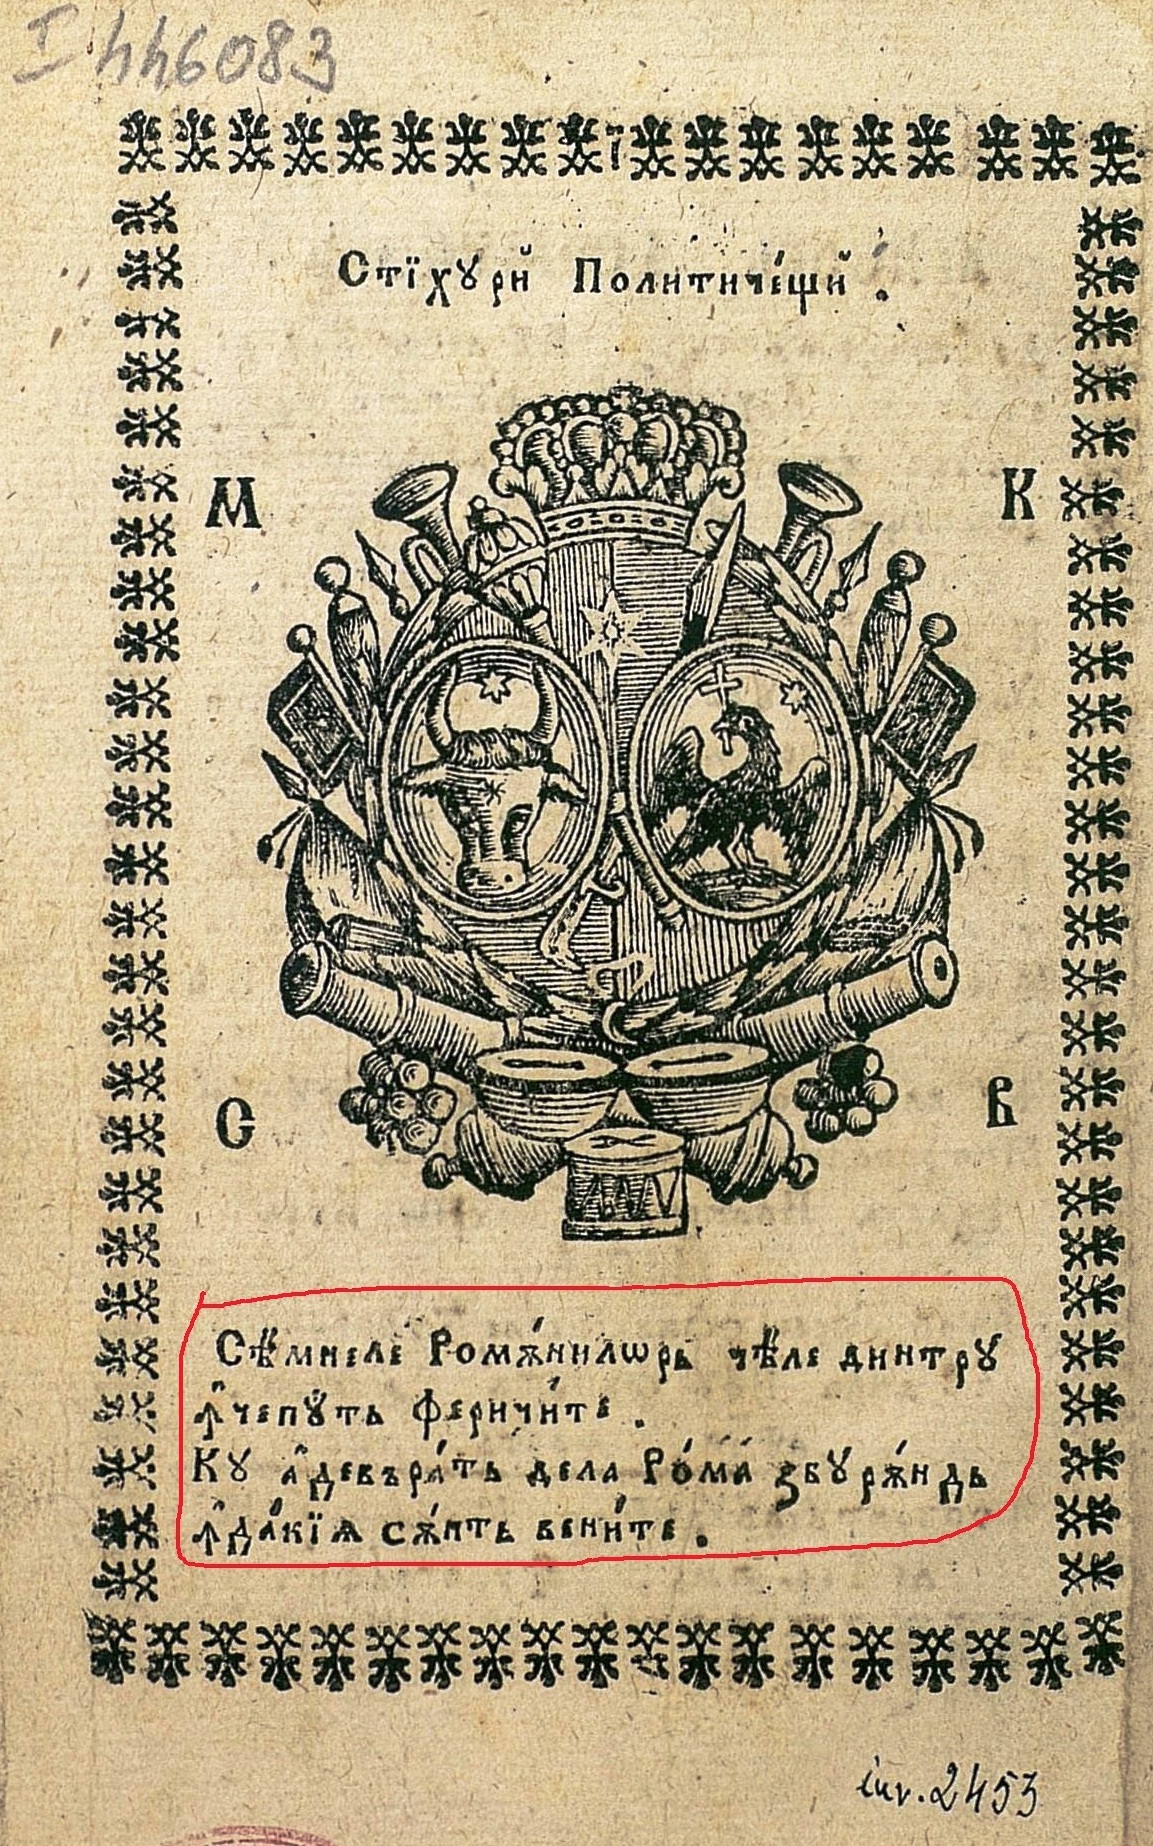 I 446083
Стїхꙋрй Политиче́щй .
М К
С В
Сѣ́мнеле Ромѫ́нилѡрь чѣ́ле динтрꙋ
ꙟ҆чепꙋ́ть феричи́те .
Кꙋ а҆деввъра́ть дела Ро́ма збꙋрѫ́ндь
ꙟ҆да́кїѧ сѫ́нть вени́те .
inv. 2453